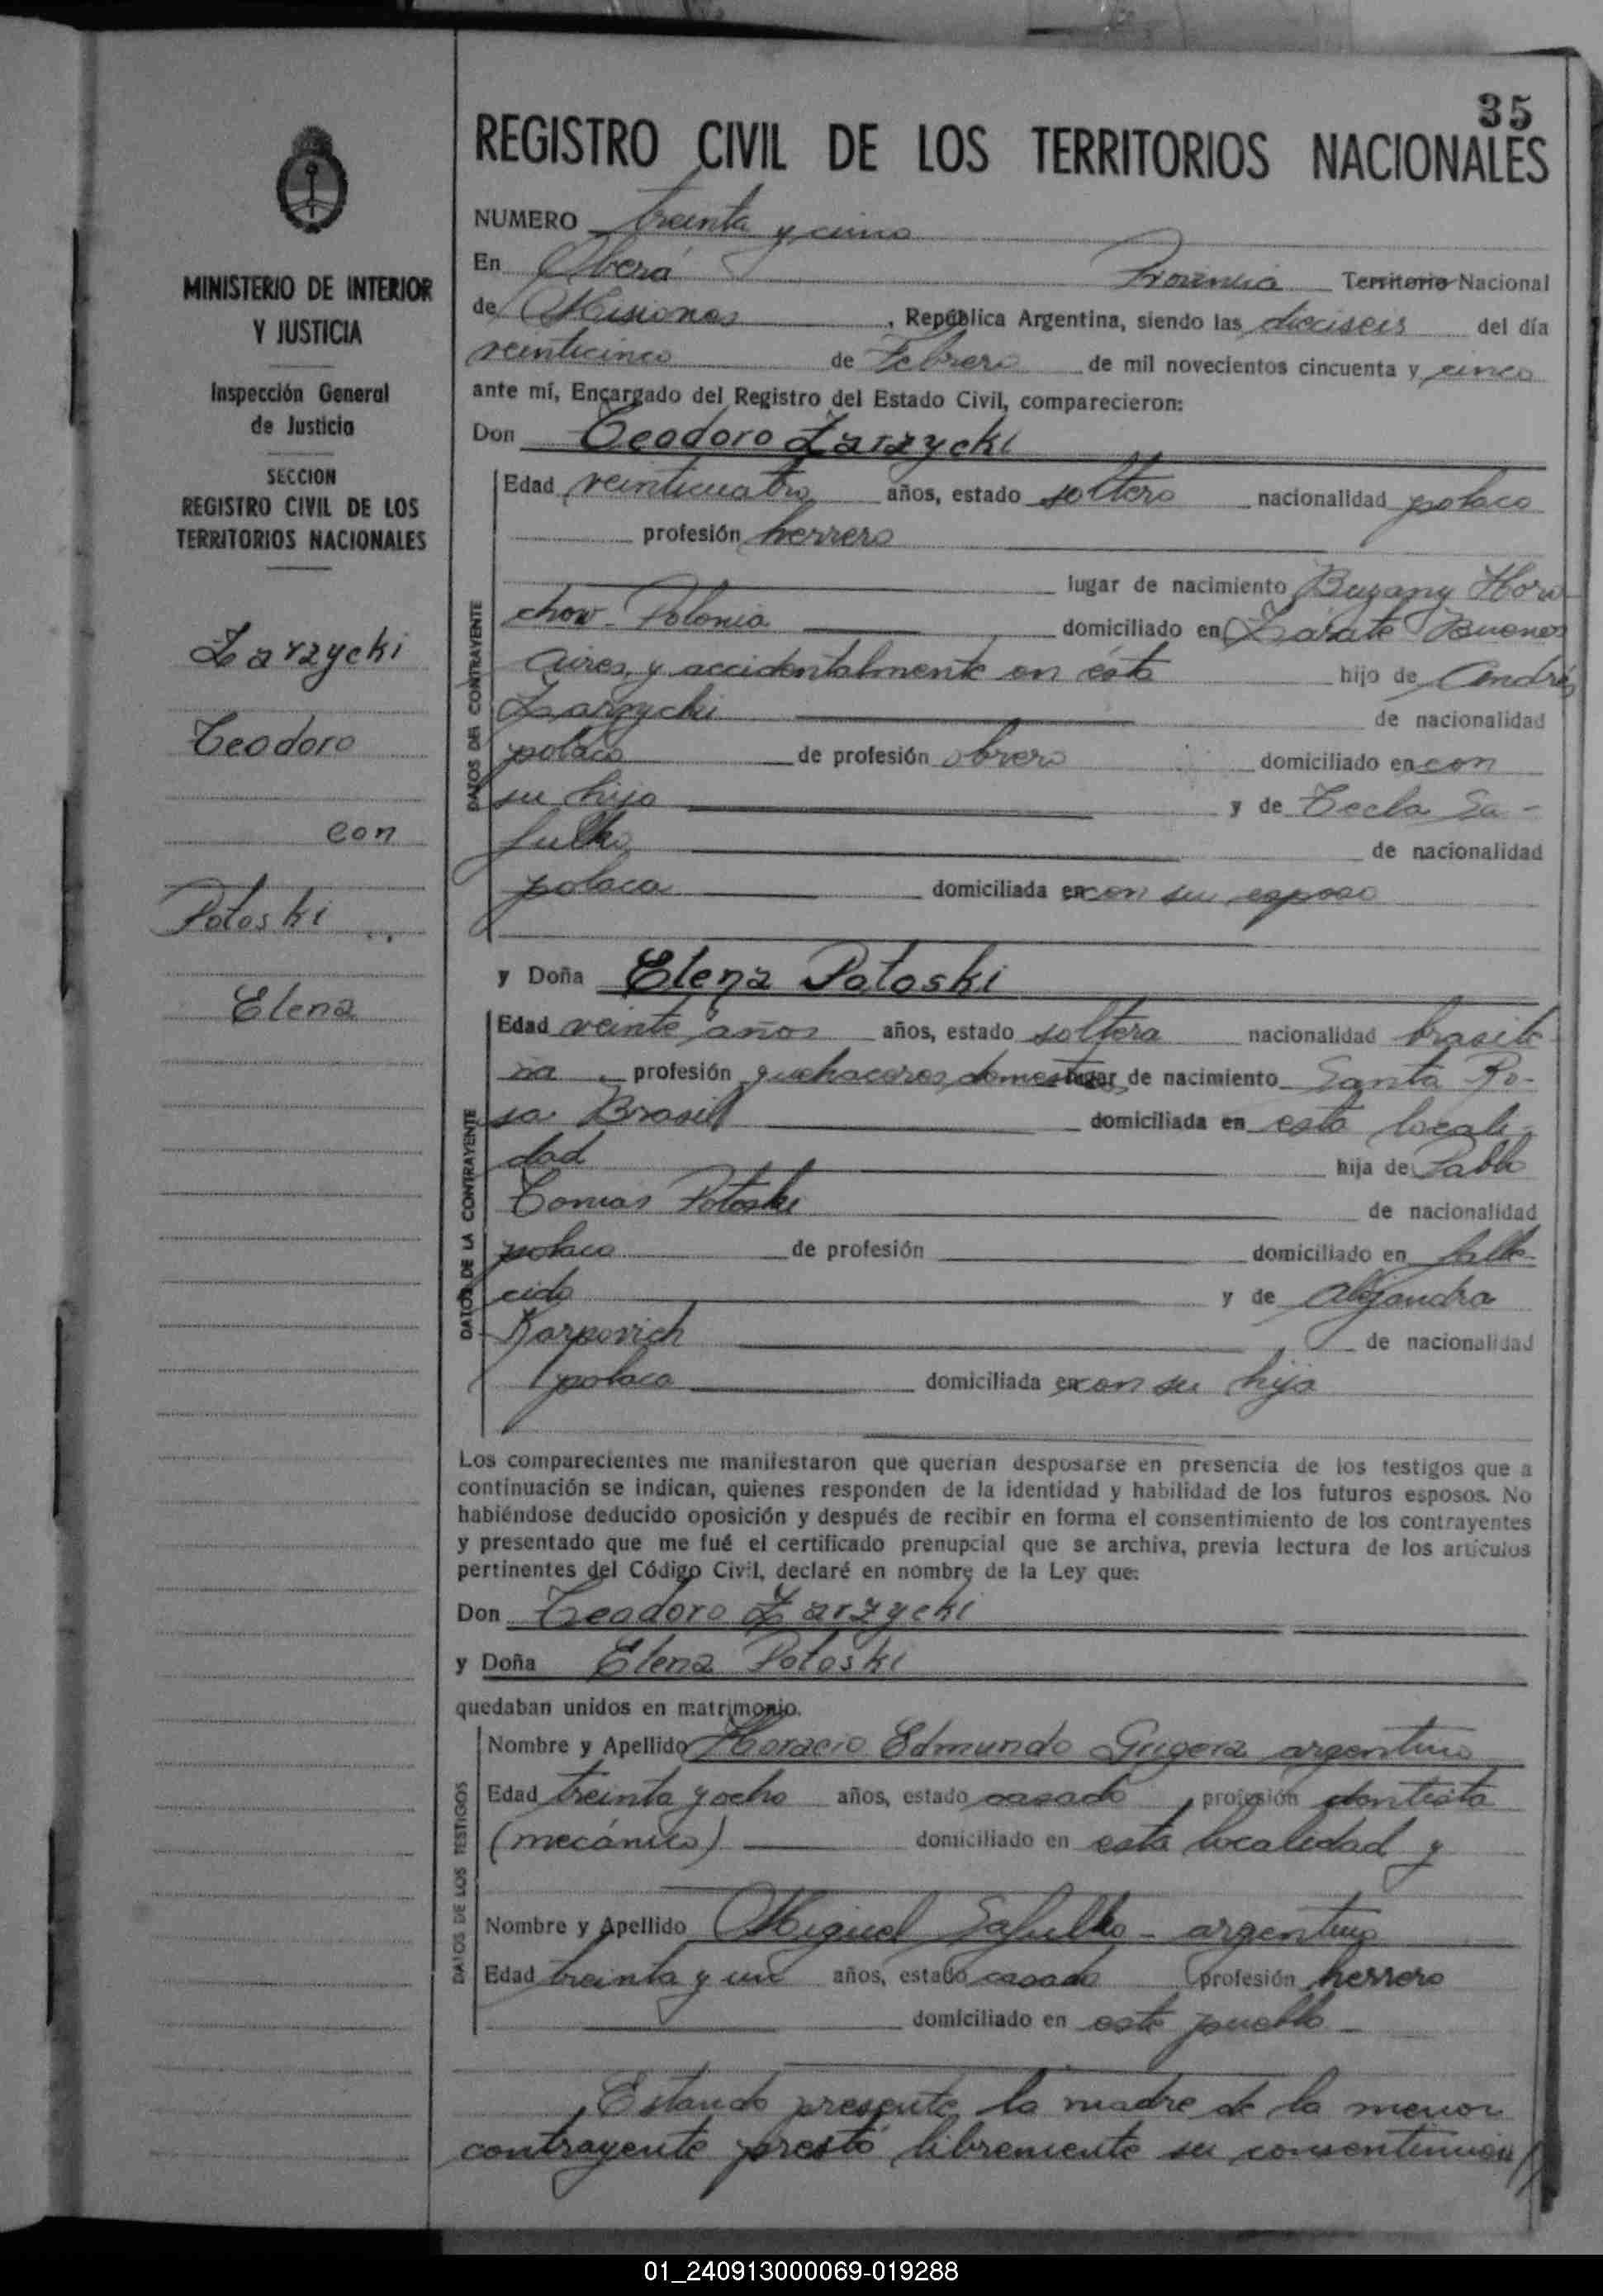 35
REGISTRO CIVIL DE LOS TERRITORIOS NACIONALES
MINISTERIO DE INTERIOR
Y JUSTICIA
Inspección General
de Justicia
SECCION
REGISTRO CIVIL DE LOS
TERRITORIOS NACIONALES
Zarzycki
Teodoro
con
Potoski
Elena
NUMERO treinta y cinco
En Oberá Provincia Territorio Nacional
de Misiones, República Argentina, siendo las dieciseis del día
veinticinco de Febrero de mil novecientos cincuenta y cinco
ante mí, Encargado del Registro del Estado Civil, comparecieron:
Don Teodoro Zarzycki
DATOS DEL CONTRAYENTE
Edad veinticuatro años, estado soltero nacionalidad polaco
profesión herrero
lugar de nacimiento Buzany Horo
chow - Polonia domiciliado en Zárate Buenos
Aires, y accidentalmente en ésta hijo de Andrés
Zarzycki de nacionalidad
polaco de profesión obrero domiciliado en con
su hijo y de Tecla Sa-
fulko de nacionalidad
polaca domiciliada en con su esposo
y Doña Elena Potoski
DATOS DE LA CONTRAYENTE
Edad veinte años años, estado soltera nacionalidad brasile
ña, profesión quehaceres domesticos lugar de nacimiento Santa Ro-
sa Brasil domiciliada en esta locali-
dad hija de Pablo
Tomas Potoski de nacionalidad
polaco de profesión domiciliado en falle-
cido y de Alejandra
Karpovich de nacionalidad
polaca domiciliada en con su hija
Los comparecientes me manifestaron que querían desposarse en presencia de los testigos que a
continuación se indican, quienes responden de la identidad y habilidad de los futuros esposos. No
habiéndose deducido oposición y después de recibir en forma el consentimiento de los contrayentes
y presentado que me fué el certificado prenupcial que se archiva, previa lectura de los artículos
pertinentes del Código Civil, declaré en nombre de la Ley que:
Don Teodoro Zarzycki
y Doña Elena Potoski
quedaban unidos en matrimonio.
DATOS DE LOS TESTIGOS
Nombre y Apellido Horacio Edmundo Grigera argentino
Edad treinta y ocho años, estado casado, profesión dentista
(mecánico) domiciliado en esta localidad y
Nombre y Apellido Miguel Safulko - argentino
Edad treinta y un años, estado casado profesión herrero
domiciliado en este pueblo
Estando presente la madre de la menor
contrayente prestó libremente su consentimien
01_240913000069-019288